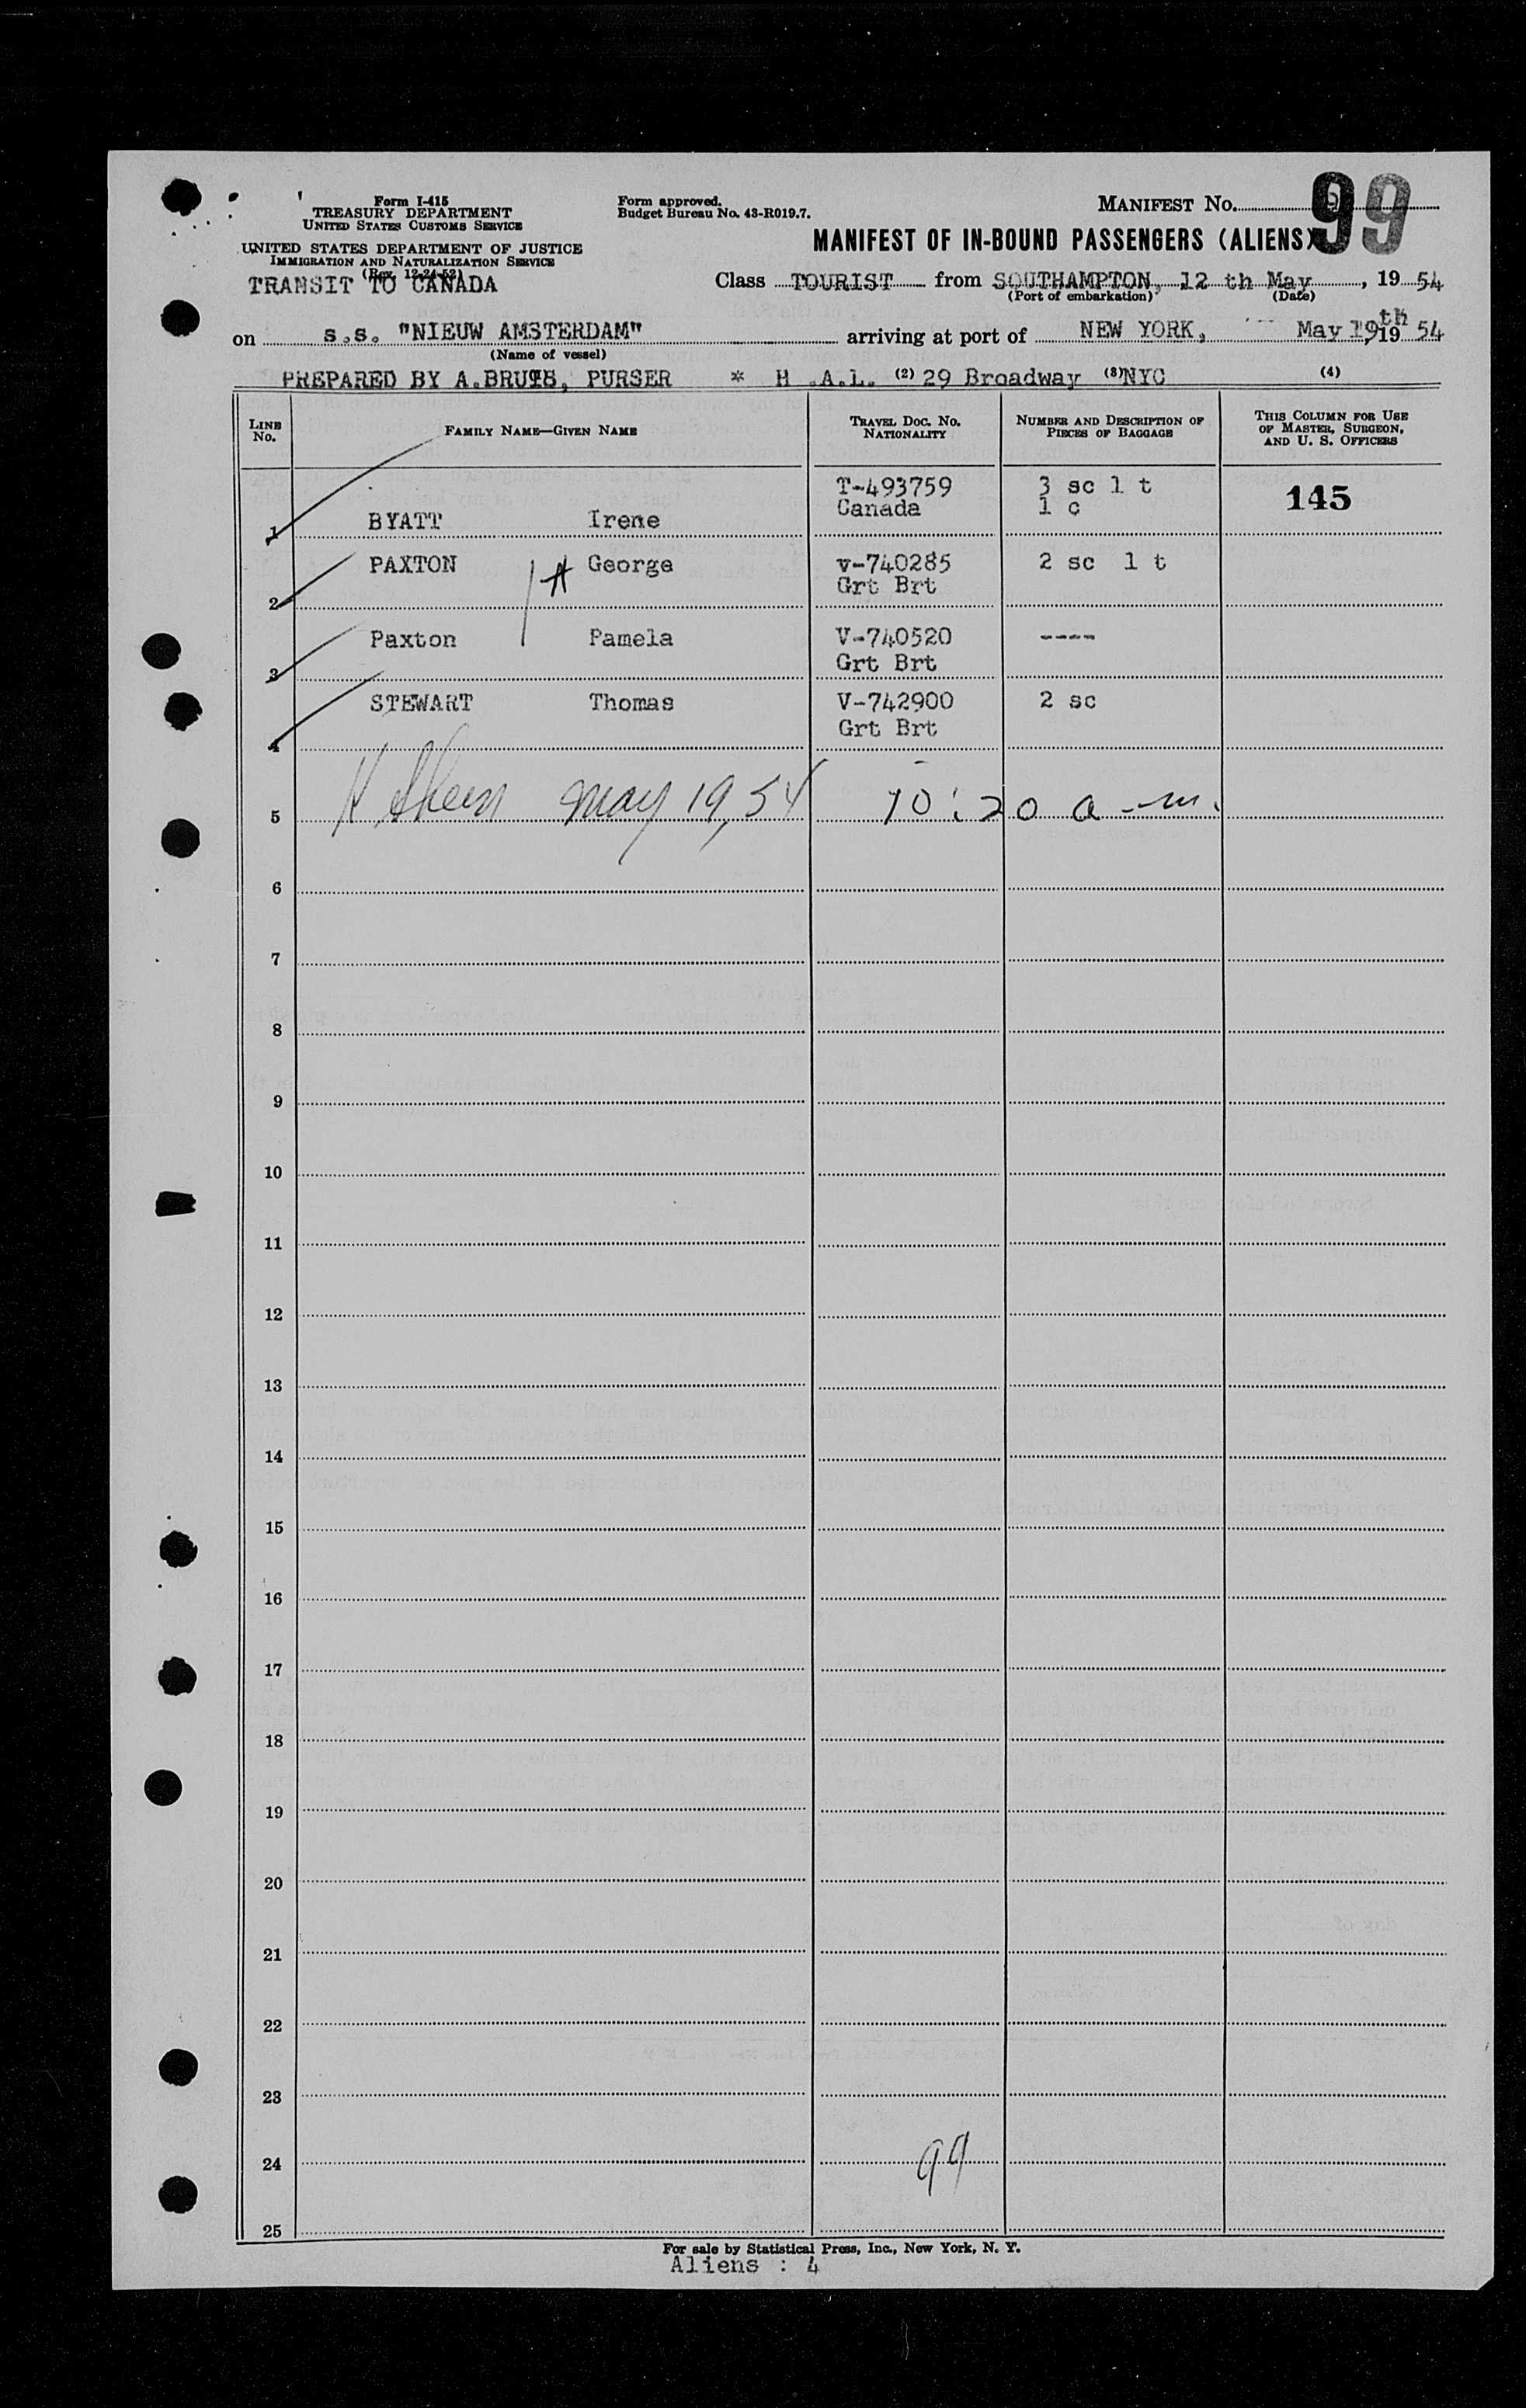 Form I-415
TREASURY DEPARTMENT
UNITED STATES CUSTOMS SERVICE
UNITED STATES DEPARTMENT OF JUSTICE
IMMIGRATION AND NATURALIZATION SERVICE
(Rev. 12-24-52)
TRANSIT TO CANADA
Form approved.
Budget Bureau No. 43-R019.7.
MANIFEST No. 99
MANIFEST OF IN-BOUND PASSENGERS (ALIENS)
Class TOURIST from SOUTHAMPTON, 12 th May, 19 54
(Port of embarkation) (Date)
on s.s. "NIEUW AMSTERDAM" arriving at port of NEW YORK, May 19th 19 54
(Name of vessel)
PREPARED BY A. PURSER * H .A.L. (2) 29 Broadway (3) NYC (4)
LINE No. FAMILY NAME—GIVEN NAME TRAVEL DOC. NO. NATIONALITY NUMBER AND DESCRIPTION OF PIECES OF BAGGAGE THIS COLUMN FOR USE OF MASTER, SURGEON, AND U. S. OFFICERS
1 BYATT Irene T-493759 Canada 3 sc 1 t 1 c 145
2 PAXTON George v-740285 Grt Brt 2 sc 1 t
3 Paxton Pamela V-740520 Grt Brt ----
4 STEWART Thomas V-742900 Grt Brt 2 sc
5 May 19, 54 10:20 a-m.
6
7
8
9
10
11
12
13
14
15
16
17
18
19
20
21
22
23
24 99
25
For sale by Statistical Press, Inc., New York, N. Y.
Aliens : 4